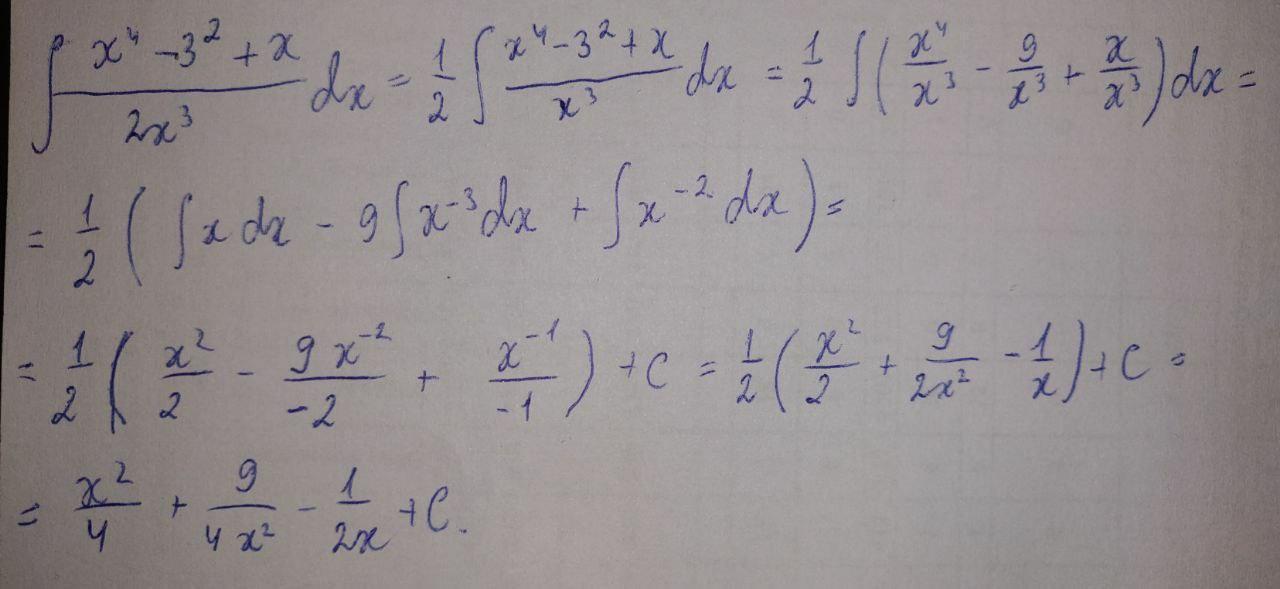 ∫ (x⁴ - 3² + x)/(2x³) dx = 1/2 ∫ (x⁴ - 3² + x)/(x³) dx = 1/2 ∫ (x⁴/x³ - 9/x³ + x/x³) dx =
= 1/2 ( ∫ x dx - 9 ∫ x⁻³ dx + ∫ x⁻² dx ) =
= 1/2 ( x²/2 - (9x⁻²)/(-2) + (x⁻¹)/(-1) ) + C = 1/2 ( x²/2 + 9/(2x²) - 1/x ) + C =
= x²/4 + 9/(4x²) - 1/(2x) + C.